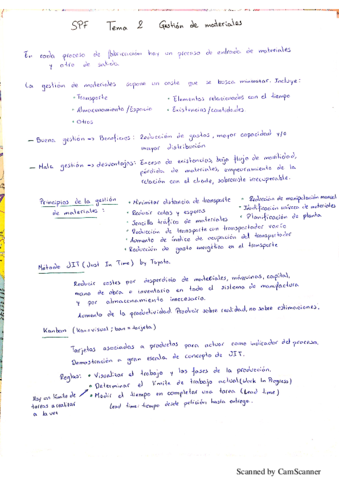 SPF Tema 2 Gestión de materiales
En cada proceso de fabricación hay un proceso de entrada de materiales
y otro de salida.
La gestión de materiales supone un coste que se busca minimizar. Incluye:
• Transporte • Elementos relacionados con el tiempo
• Almacenamiento/Espacio • Existencias/cantidades
• Otros
– Buena gestión => Beneficios: Reducción de gastos, mayor capacidad y/o
mayor distribución
– Mala gestión => desventajas: Exceso de existencias, bajo flujo de
pérdida de materiales, empeoramiento de la
relación con el cliente, sobrecoste irrecuperable.
Principios de la gestión • Minimizar distancia de transporte • Reducción de manipulación manual
de materiales: • Reducir colas y esperas • Identificación unívoca de materiales
• Sencillo tráfico de materiales • Planificación de planta
• Reducción de transporte con transportador vacío
• Aumento de índice de ocupación del transportador
• Reducción de gasto energético en el transporte
Método JIT (Just In Time) by Toyota.
Reducir costes por desperdicio de materiales, máquinas, capital,
mano de obra e inventario en todo el sistema de manufactura
y por almacenamiento innecesario.
Aumento de la productividad. Producir sobre realidad, no sobre estimaciones.
Kanban (kan=visual; ban=tarjeta)
Tarjetas asociadas a productos para actuar como indicador del proceso.
Demostración a gran escala de concepto de JIT.
Reglas: • Visualizar el trabajo y las fases de la producción.
• Determinar el límite de trabajo actual (Work In Progress)
Hay un límite de
tareas a realizar
a la vez
• Medir el tiempo en completar una tarea (Lead time)
Lead time: tiempo desde petición hasta entrega.
Scanned by CamScanner